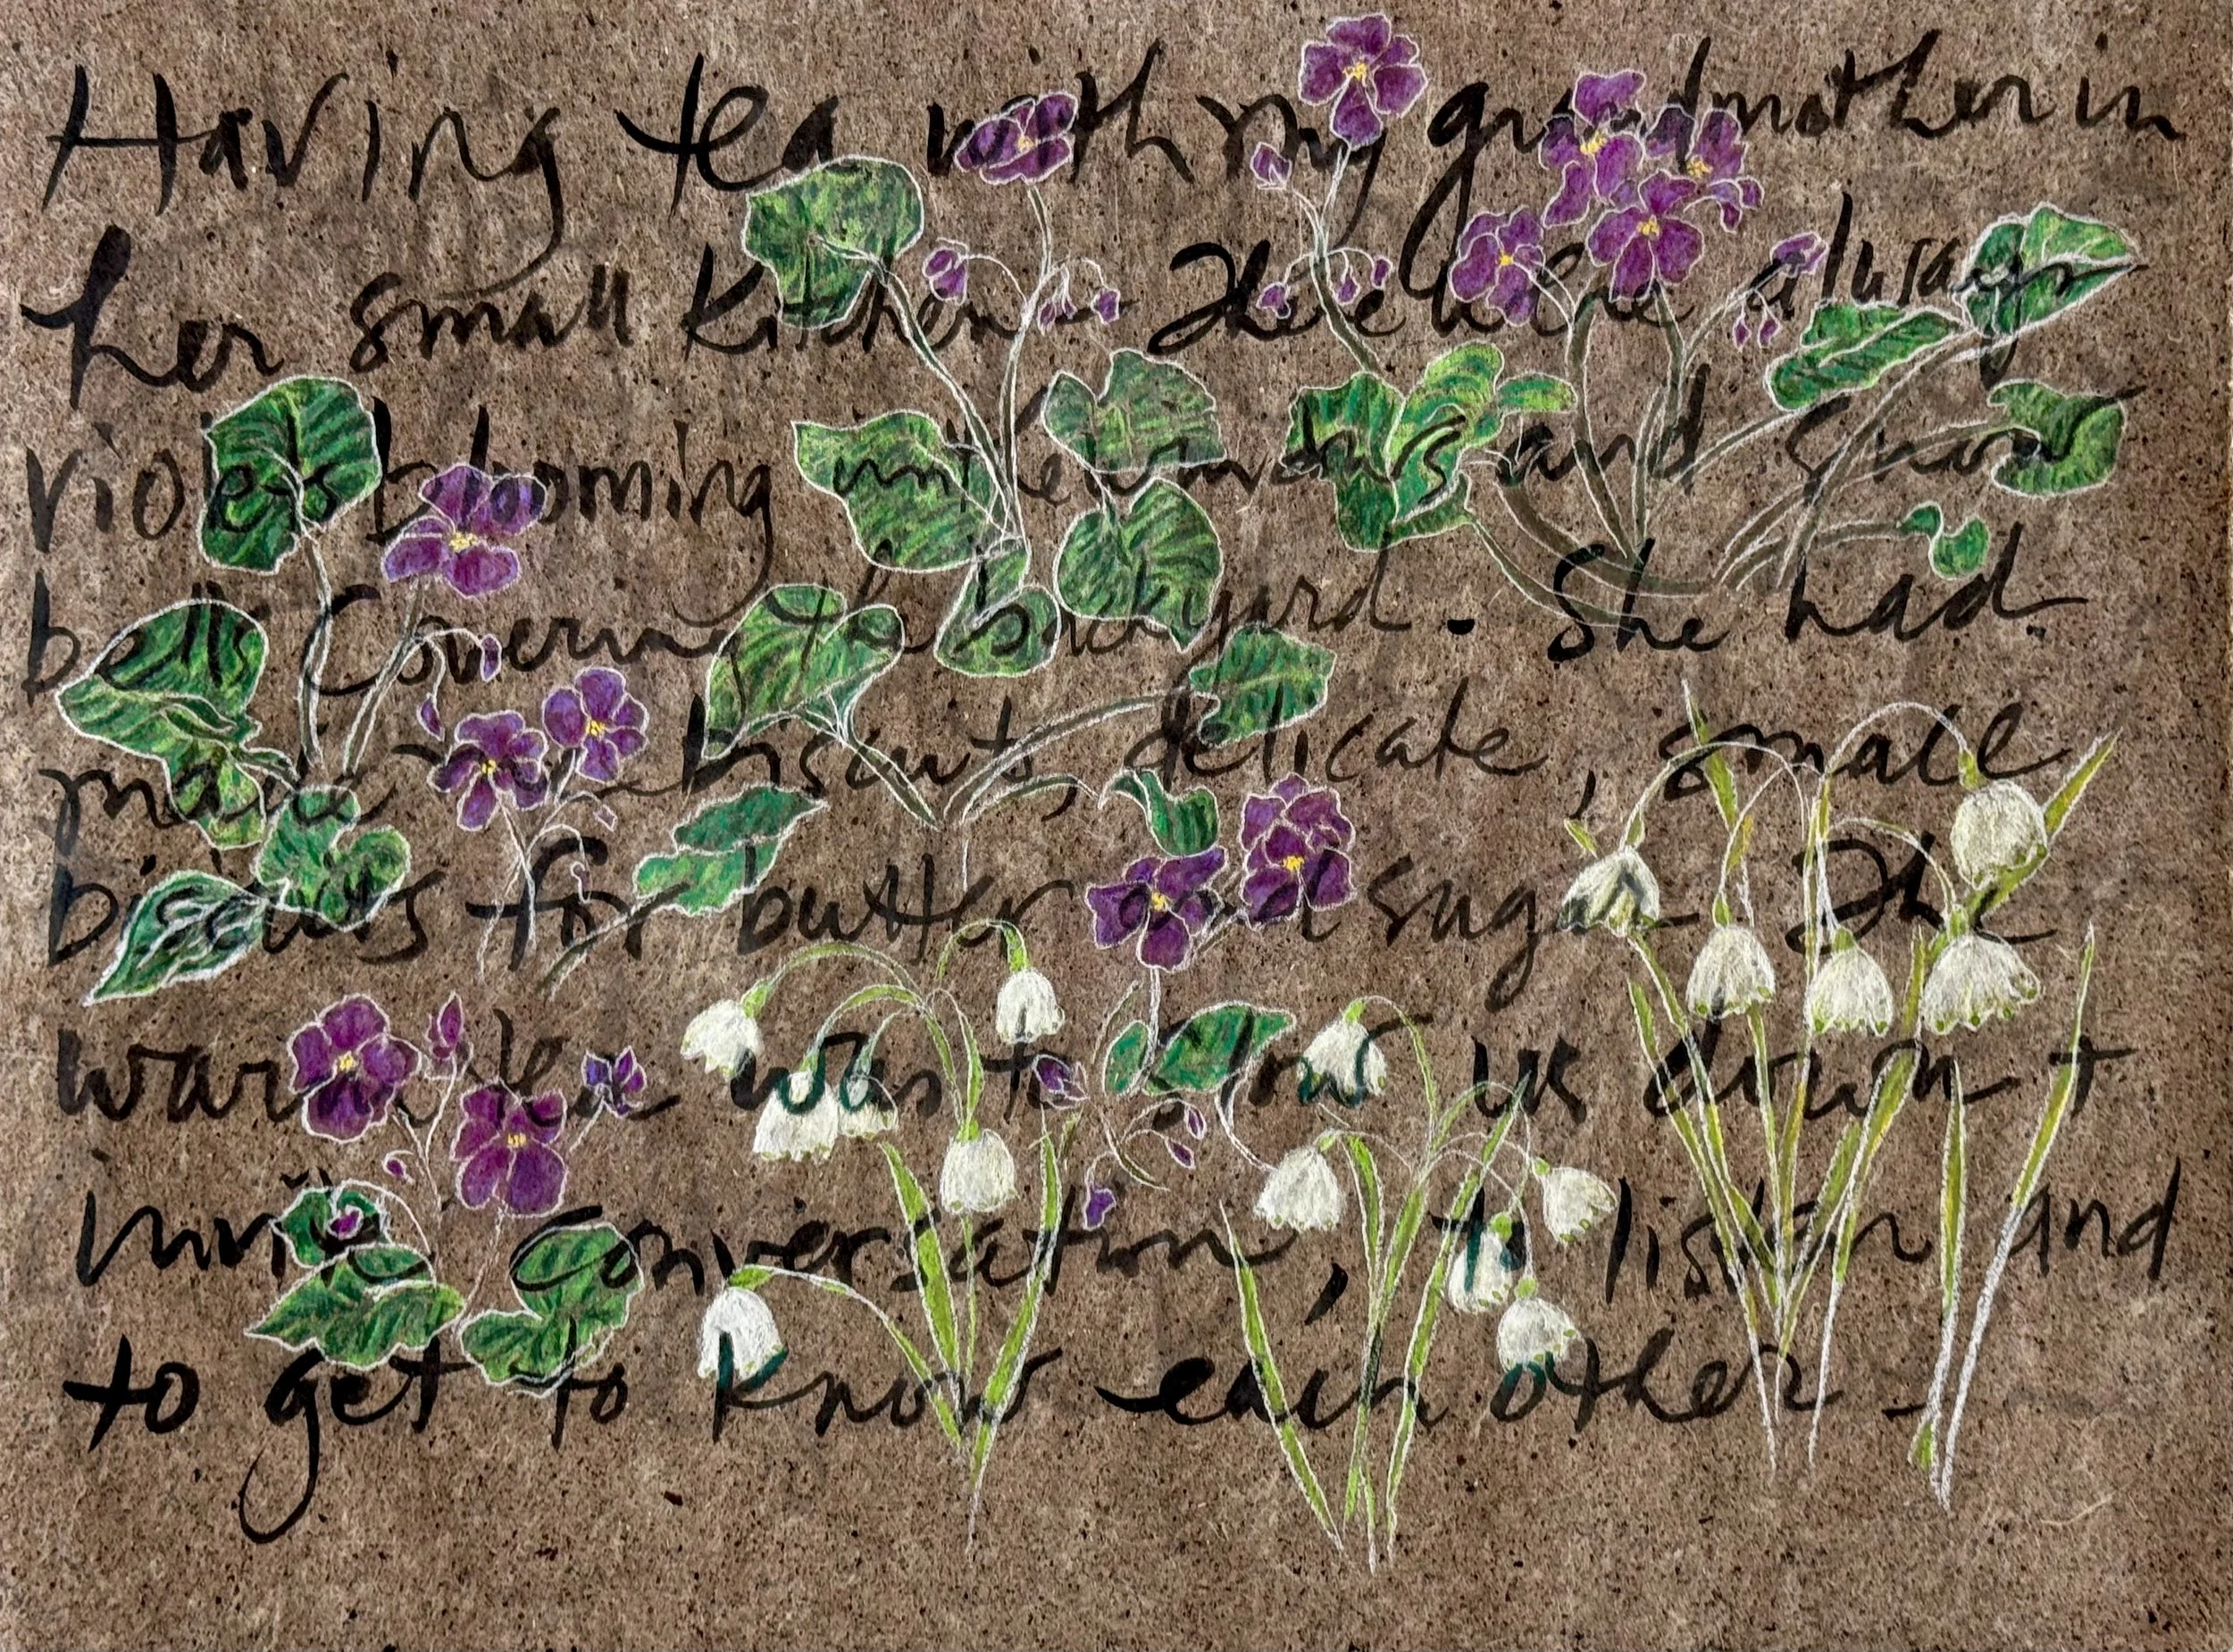 Having tea with my grandmother in
her small kitchen - There were always
violets blooming in the windows and snow
bells covering the backyard. She had
made biscuits, delicate, small
biscuits for butter and sugar The
warm tea was to slow us down +
invite conversation, to listen and
to get to know each other -